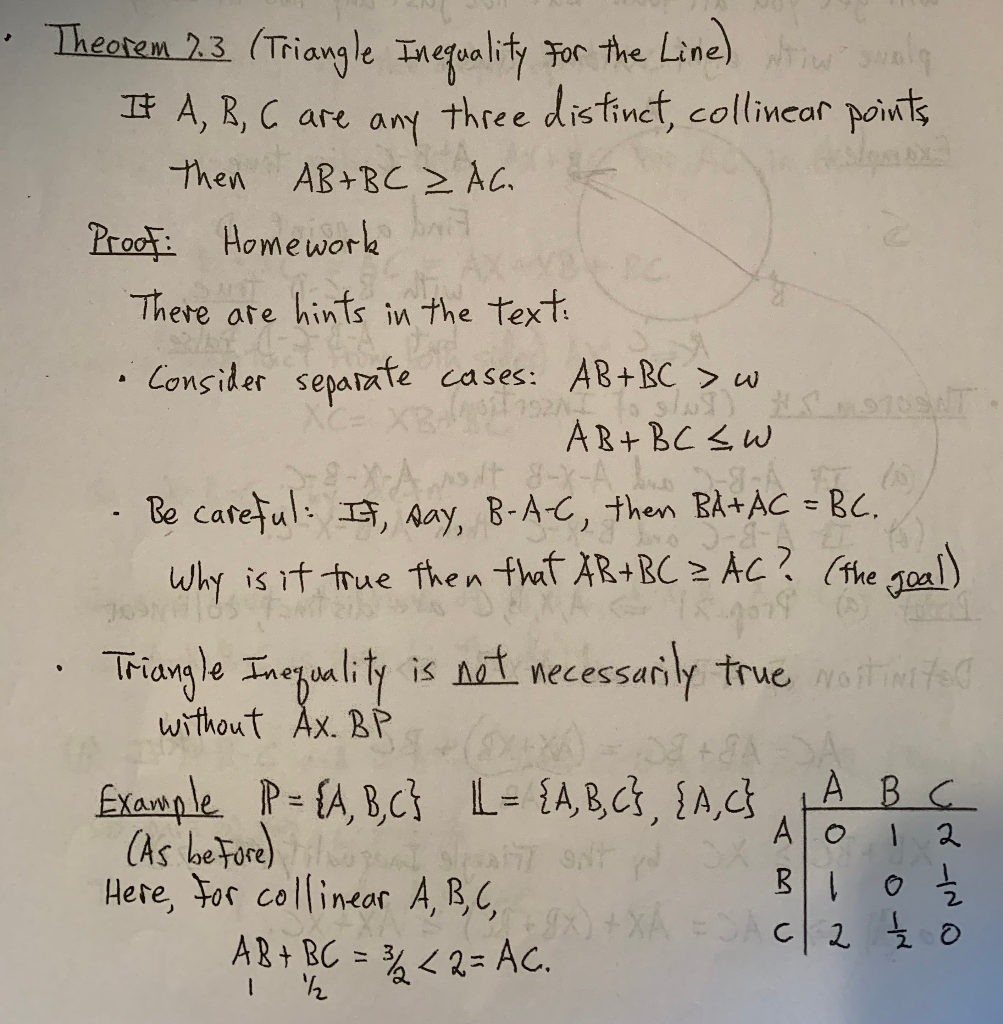 · Theorem 7.3 (Triangle Inequality for the Line)
If A, B, C are any three distinct, collinear points,
then AB+BC ≥ AC.
Proof: Homework
There are hints in the text:
· Consider separate cases: AB+BC > ω
AB+BC ≤ ω
· Be careful: If, say, B-A-C, then BA+AC = BC.
Why is it true then that AB+BC ≥ AC? (the goal)
· Triangle Inequality is not necessarily true
without Ax. BP
Example ℙ = {A, B, C} 𝕃 = {A, B, C}, {A, C}
(As before)
Here, for collinear A, B, C,
AB + BC = 3/2 < 2 = AC.
1 1/2
A B C
A 0 1 2
B 1 0 1/2
C 2 1/2 0